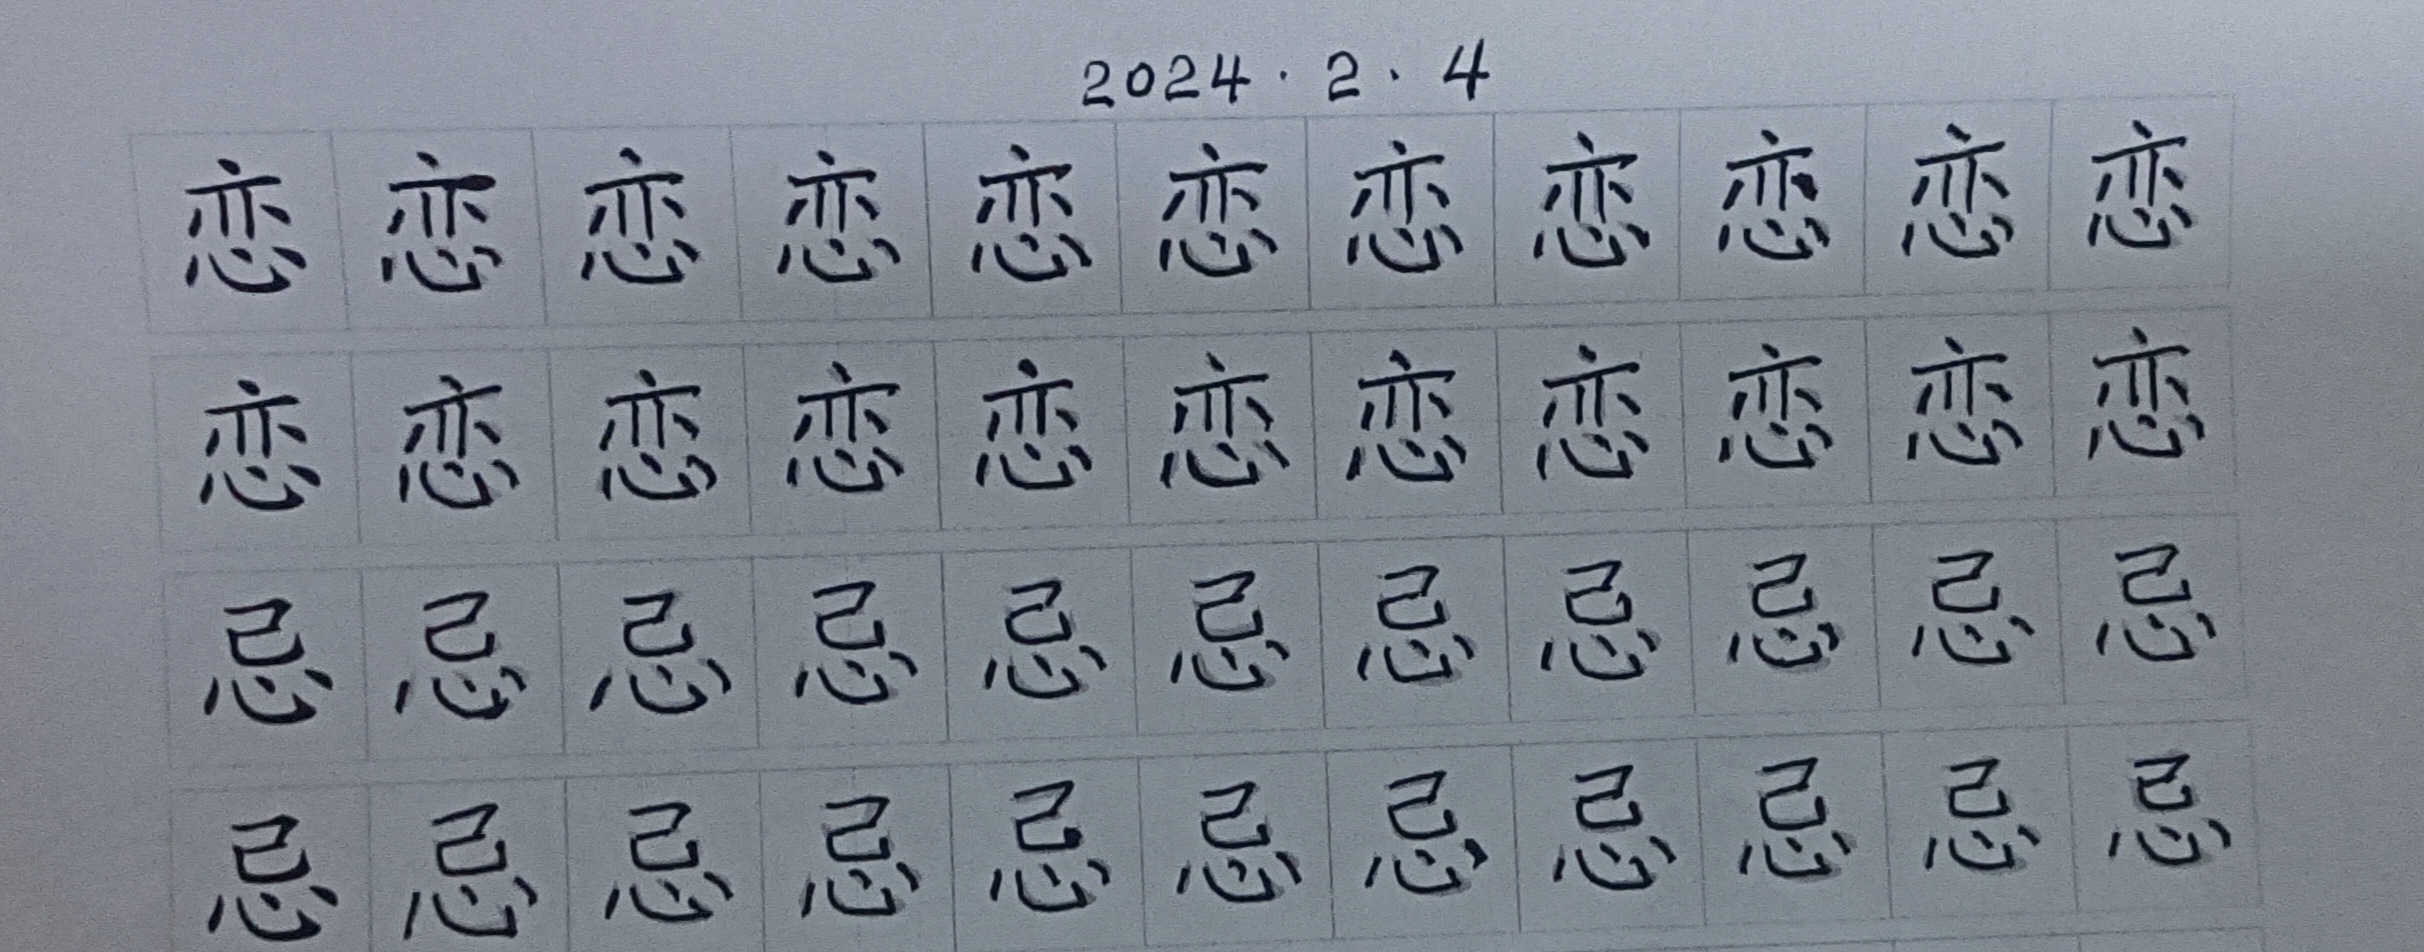 2024.2.4
恋恋恋恋恋恋恋恋恋恋恋
恋恋恋恋恋恋恋恋恋恋恋
忌忌忌忌忌忌忌忌忌忌忌
忌忌忌忌忌忌忌忌忌忌忌